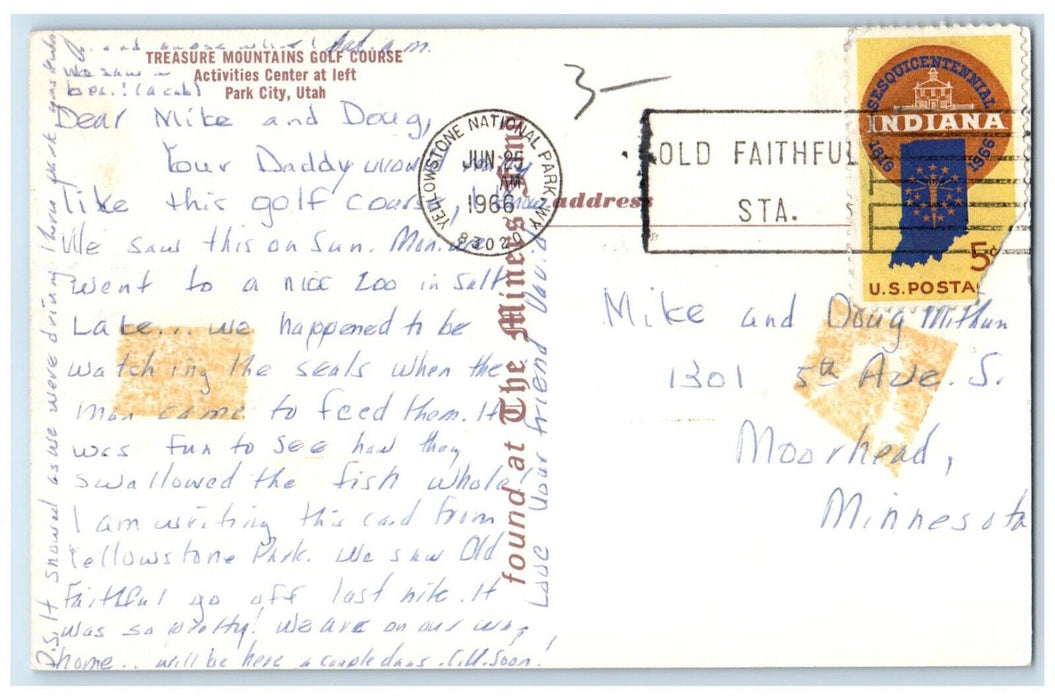 TREASURE MOUNTAINS GOLF COURSE
Activities Center at left
Park City, Utah
Dear Mike and Doug,
Your Daddy would really
like this golf course, I know
We saw this on Sun. Mon. we
went to a nice zoo in Salt
Lake... we happened to be
watching the seals when the
man came to feed them. It
was fun to see how they
swallowed the fish whole!
I am writing this card from
Yellowstone Park. We saw Old
Faithful go off last nite. It
was so pretty! We are on our way
home.. will be here a couple days. C.U. Soon!
Love your friend David
P.S. It snowed as we were driving thru park yesterday
and
a.m.
We saw a
bear! (a cub)
found at The Miners
address
3-
YELLOWSTONE NATIONAL PARK, WY.
JUN 25
AM
1966
83020
OLD FAITHFUL
STA.
SESQUICENTENNIAL
INDIANA
1816 1966
5¢
U.S. POSTA
Mike and Doug Mithun
1301 5th Ave. S.
Moorhead,
Minnesota